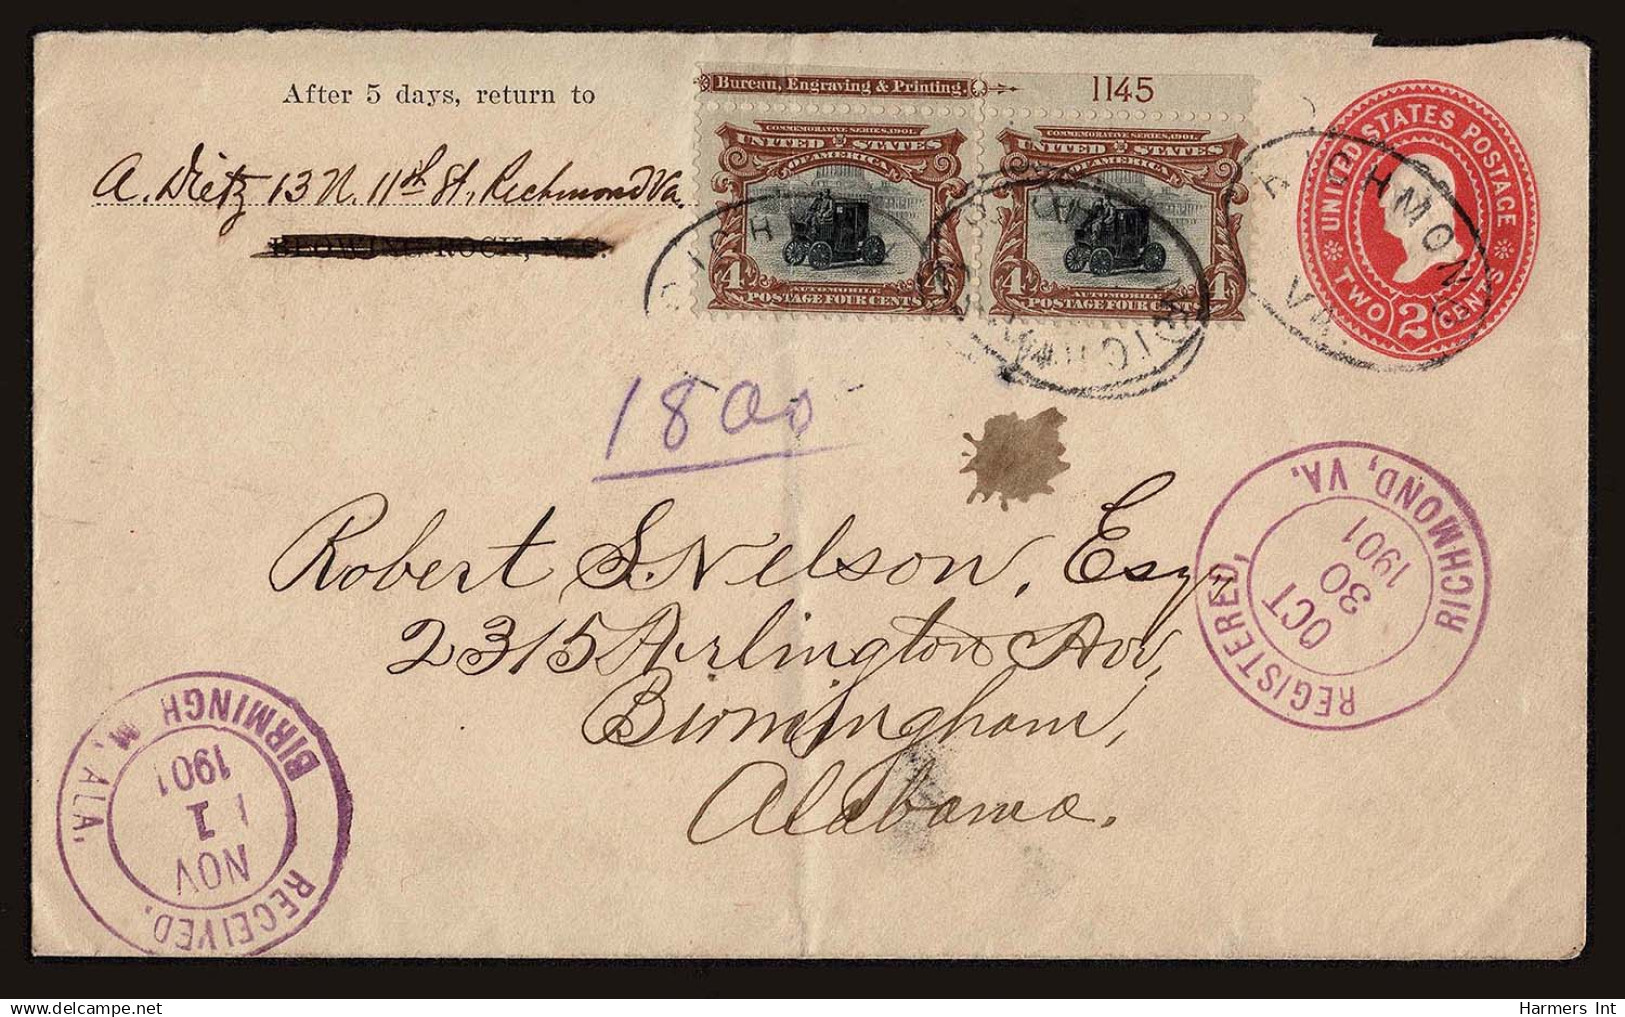 After 5 days, return to
A. Dietz 13 N. 11th St., Richmond Va.
BLOWING ROCK, N.C.
Bureau, Engraving & Printing.
1145
COMMEMORATIVE SERIES, 1901.
UNITED STATES
OF AMERICA
4 4
AUTOMOBILE
POSTAGE FOUR CENTS
COMMEMORATIVE SERIES, 1901.
UNITED STATES
OF AMERICA
4 4
AUTOMOBILE
POSTAGE FOUR CENTS
UNITED STATES POSTAGE
TWO 2 CENTS
RICHMOND
VA.
1800
Robert S. Nelson, Esq.
2315 Arlington Av,
Birmingham,
Alabama.
REGISTERED,
OCT
30
1901
RICHMOND, VA.
RECEIVED,
NOV
1
1901
BIRMINGH M, ALA.
Harmers Int